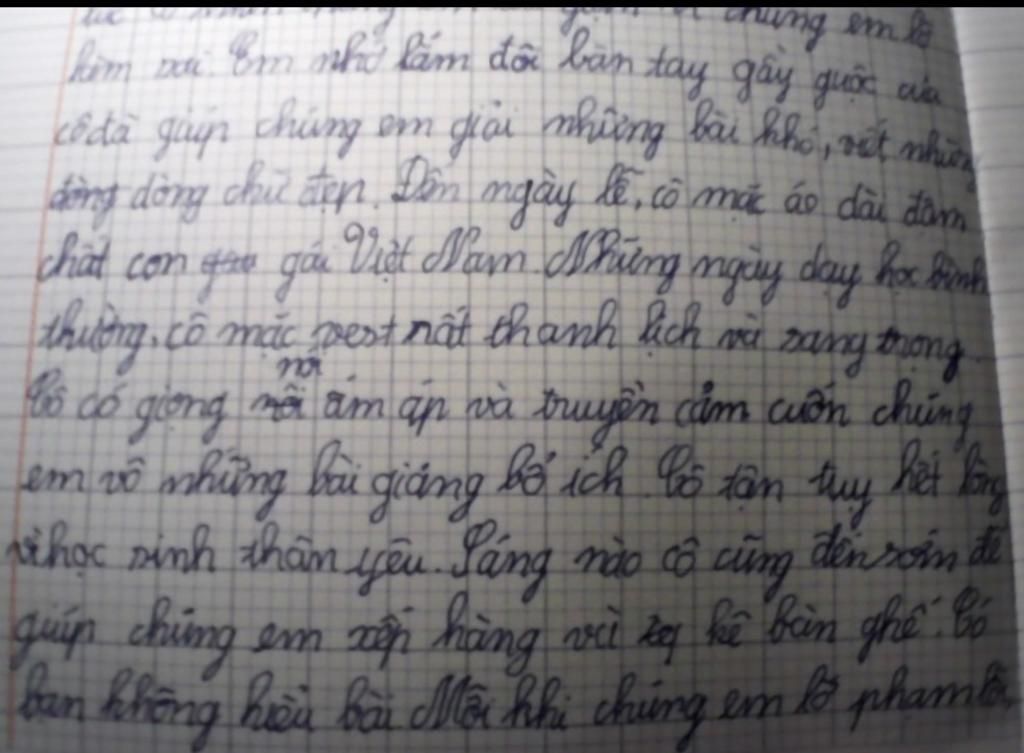 chúng em lỡ
Em nhớ lắm đôi bàn tay gầy guộc của
cô đã giúp chúng em giải những bài khó, viết những
dòng chữ đẹp. Đến ngày lễ, cô mặc áo dài đậm
chất con gái Việt Nam. Những ngày dạy học bình
thường, cô mặc vest rất thanh lịch và sang trọng.
Cô có giọng nói ấm áp và truyền cảm cuốn chúng
em vô những bài giảng bổ ích. Cô tận tụy hết lòng
vì học sinh thân yêu. Sáng nào cô cũng đến sớm để
giúp chúng em xếp hàng và kê bàn ghế. Có
bạn không hiểu bài Mỗi khi chúng em lỡ phạm lỗi,